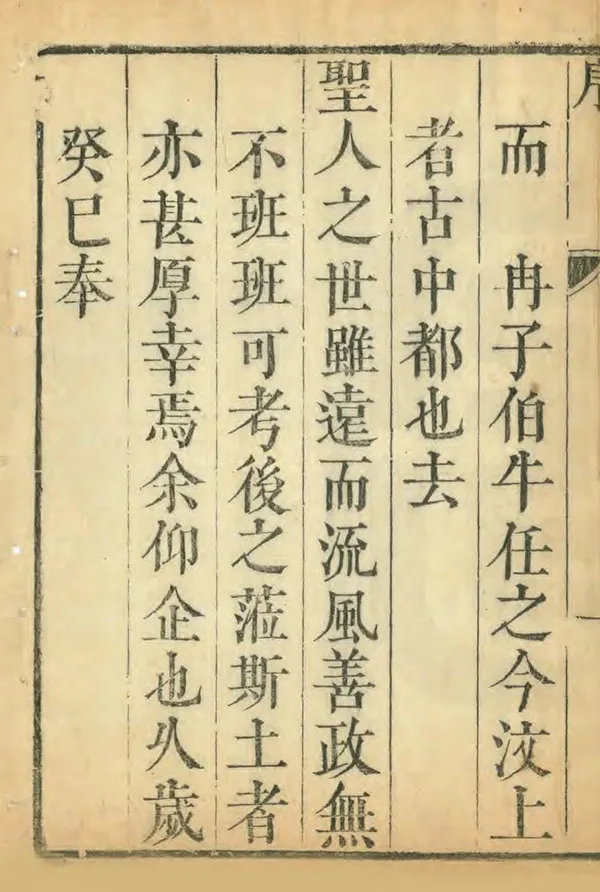 序
而 冉子伯牛任之今汶上
者古中都也去
聖人之世雖遠而流風善政無
不班班可考後之蒞斯土者
亦甚厚幸焉余仰企也久歲
癸巳奉